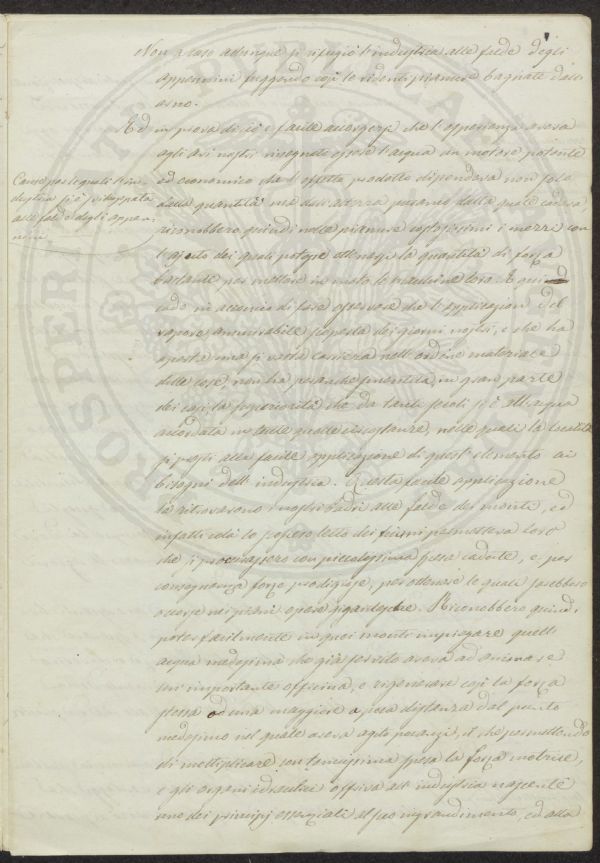 Non a caso adunque si rifugiò l'industria alle falde degli
appennini fuggendo così le ridenti pianure bagnate dall'
arno.
Ed in prova di ciò è facile accorgersi che l'esperienza aveva
agli avi nostri insegnato essere l'acqua un motore potente
Cause per le quali l'in-
dustria si è sviluppata
alle falde degli appen-
nini.
ed economico che l'effetto prodotto dipendeva non solo
dalla quantità ma dall'altezza peranco dalla quale cadeva,
riconobbero quindi nelle pianure costosissimi i mezzi con
l'ajuto dei quali potesse ottenersi la quantità di forza
bastante per mettere in moto le macchine loro. E quì
cade in acconcio di fare osservare che l'applicazione del
vapore, ammirabile scoperta dei giorni nostri, e che ha
aperta una sì vasta carriera nell'ordine materiale
delle cose, non ha peranche smentita, in gran parte
dei casi, la superiorità che da tanti secoli si è all'acqua
accordata in tutte quelle circostanze, nelle quali la località
si presti alla facile applicazione di quest'elemento ai
bisogni dell'industria. Questa facile applicazione
la ritrovarono i nostri Padri alle falde dei monti, ed
infatti colà lo scosceso letto dei fiumi permetteva loro
che si procurassero con piccolissima spesa cadute, e per
conseguenza forze prodigiose, per ottenere le quali sarebbero
occorse nei piani opere gigantesche. Riconobbero quindi
poter facilmente in quei monti impiegare quell'
acqua medesima che già servito aveva ad animare
un'importante officina, e rigenerare così la forza
stessa od una maggiore a poca distanza dal punto
medesimo nel quale aveva agito poc'anzi, il che permettendo
di moltiplicare con tenuissima spesa la forza motrice,
e gli organi idraulici offriva all'industria nascente
uno dei principj essenziali al suo ingrandimento, ed alla